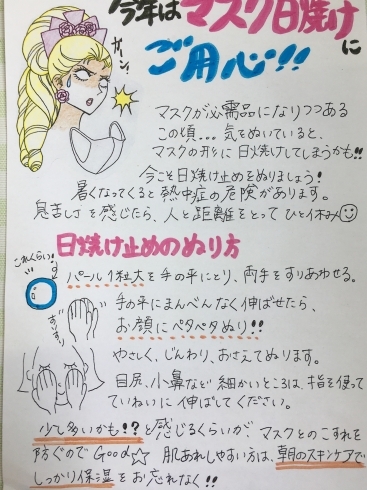 今年はマスク日焼けに
ご用心!!
ガーン!
マスクが必需品になりつつある
この頃…気をぬいていると、
マスクの形に日焼けしてしまうかも!!
今こそ日焼け止めをぬりましょう!
暑くなってくると熱中症の危険があります。
息苦しさを感じたら、人と距離をとってひと休み
日焼け止めのぬり方
これくらい!
パール1粒大を手の平にとり、両手をすりあわせる。
手の平にまんべんなく伸ばせたら、
お顔にペタペタぬり!!
すりすり
やさしく、じんわり、おさえてぬります。
目尻、小鼻など細かいところは、指を使って
ていねいに伸ばしてください。
少し多いかも!?と感じるくらいが、マスクとのこすれを
防ぐのでGood☆ 肌あれしやすい方は、朝のスキンケアで
しっかり保湿をお忘れなく!!